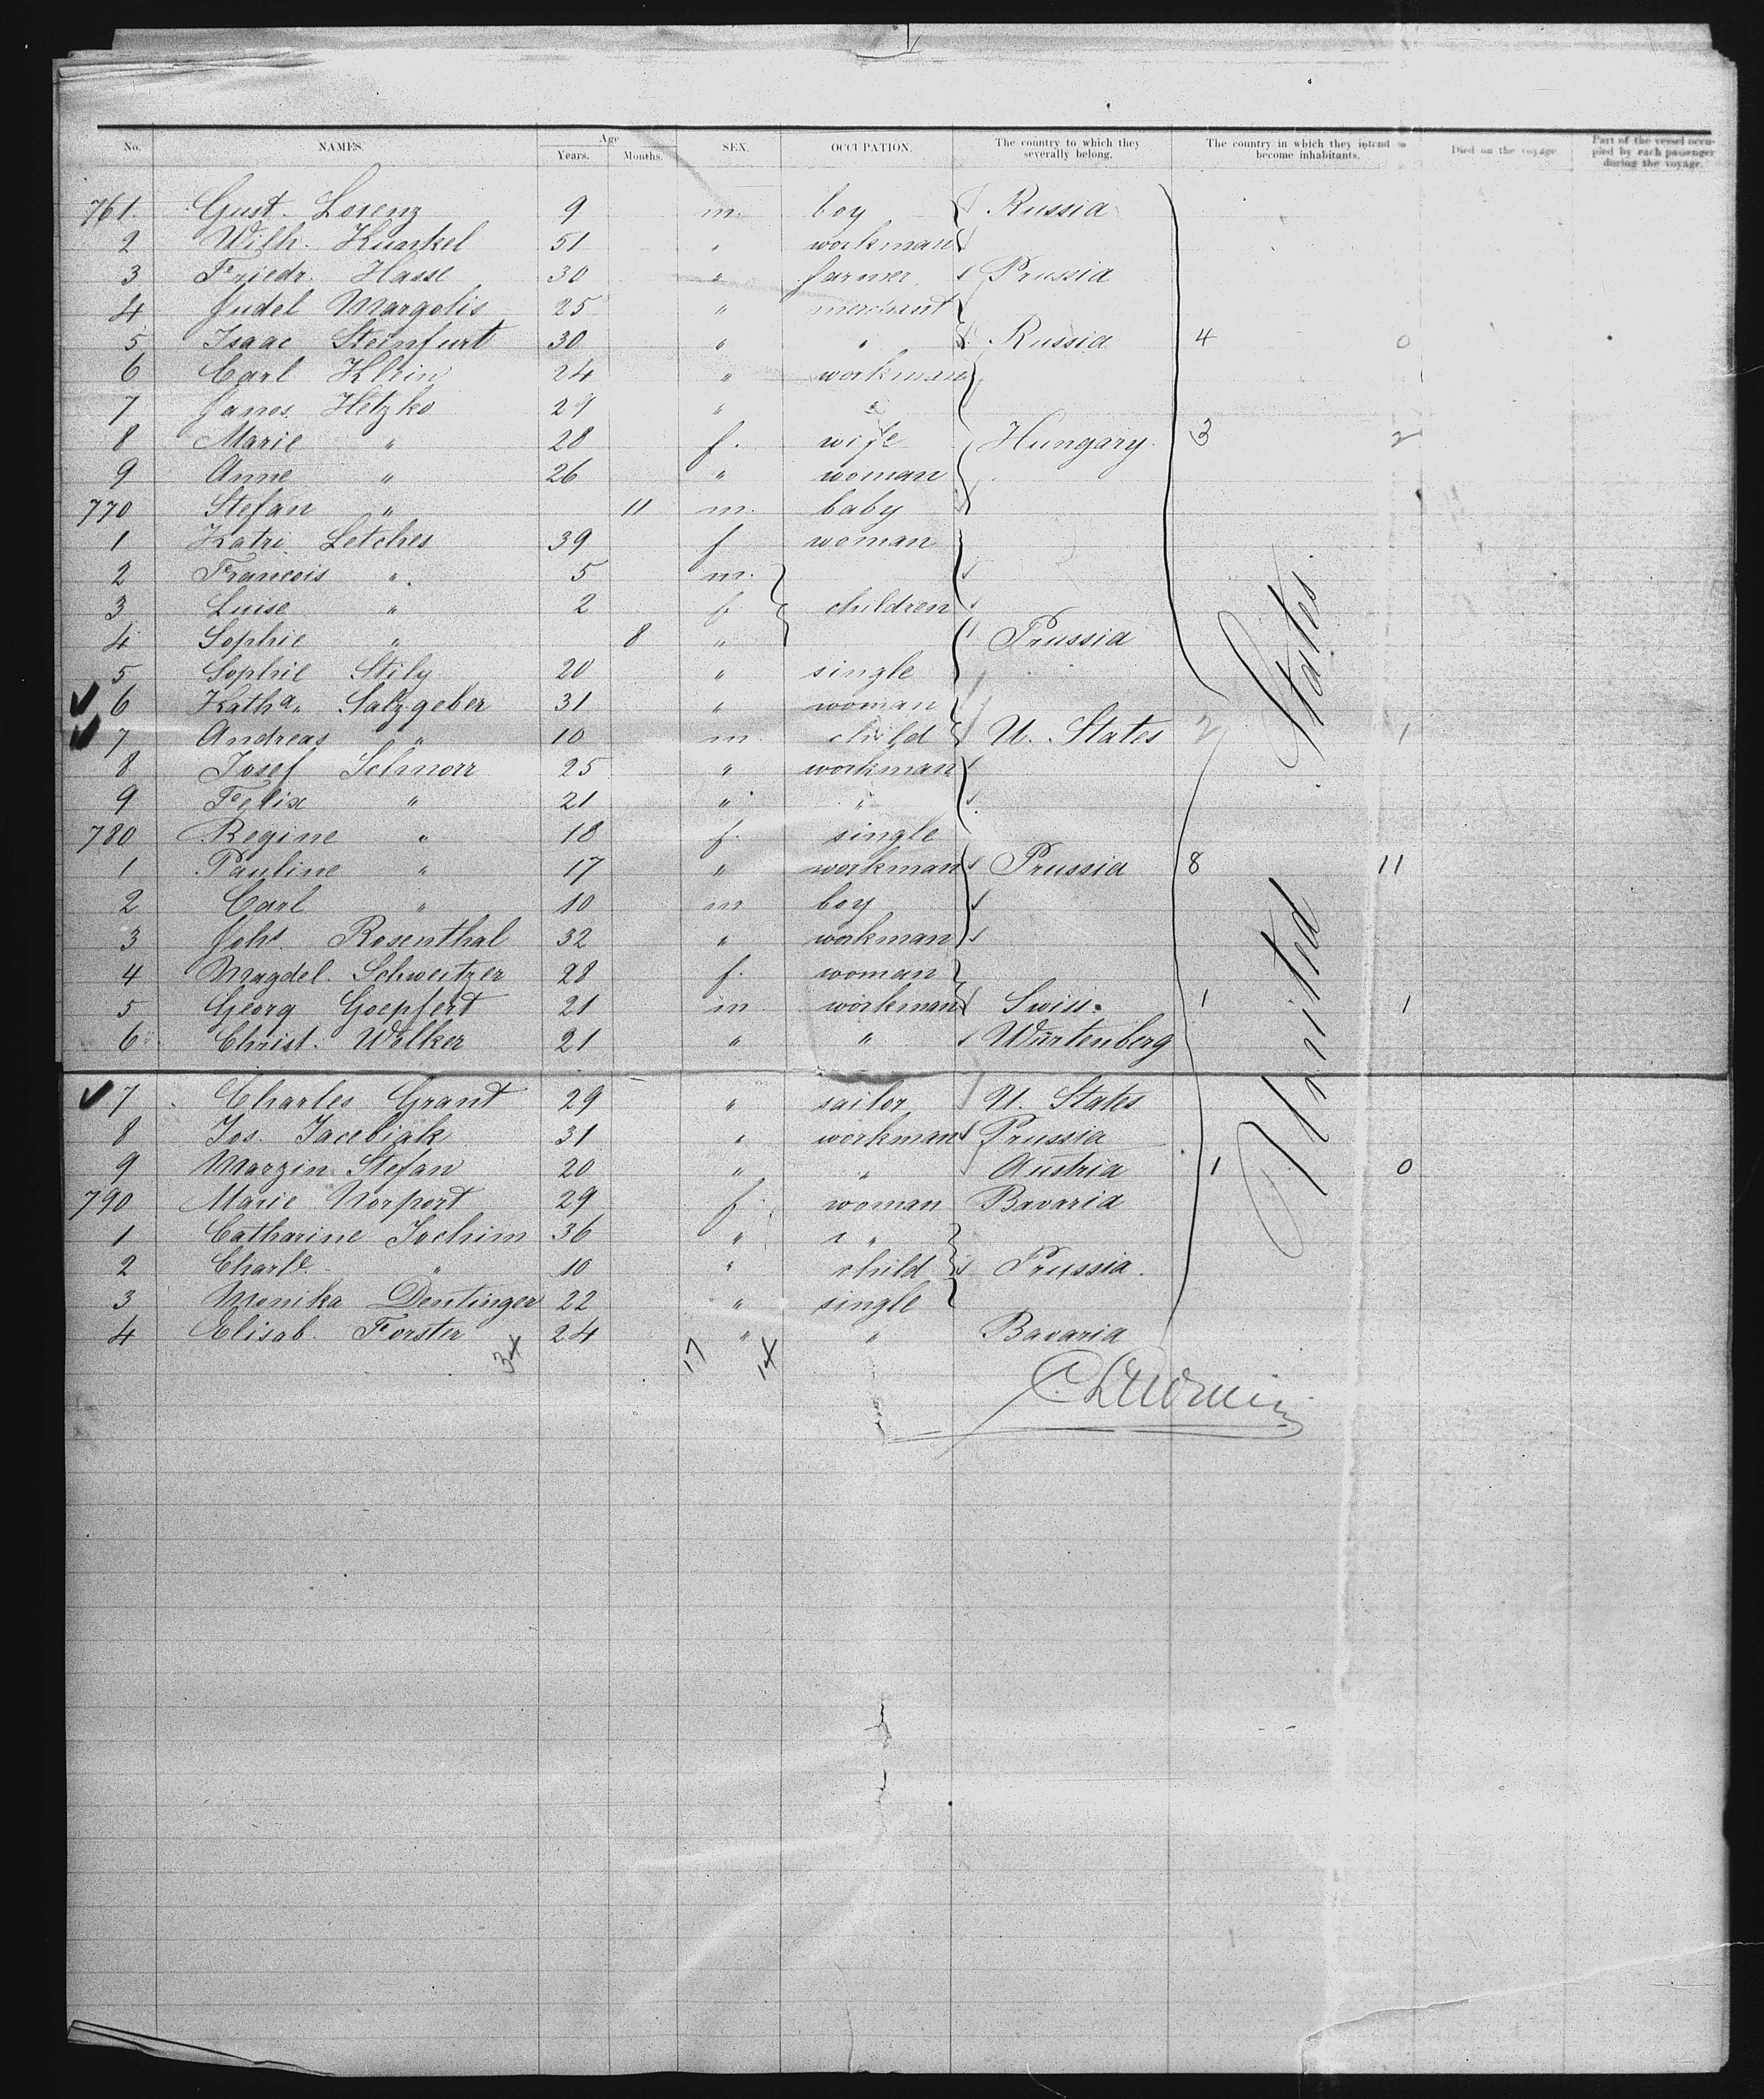 No. NAMES. Age Years. Months. SEX. OCCUPATION. The country to which they severally belong. The country in which they intend to become inhabitants. Died on the voyage Part of the vessel occupied by each passenger during the voyage.
761. Gust. Lorenz 9 m. boy Russia
2 Wilh. Kunkel 51 " workman
3 Friedr. Hasse 30 " farmer Prussia
4 Judel Margolis 25 " merchant
5 Isaac Steinfurt 30 " " Russia 4 0
6 Carl Klein 24 " workman
7 Janos Hetzko 29 " "
8 Marie " 28 f. wife Hungary. 3 2
9 Anne " 26 " woman
770 Stefan " 11 m. baby
1 Katri Letches 39 f woman
2 Francois " 5 m.
3 Luise " 2 f. children
4 Sophie " 8 " Prussia
5 Sophie Stily 20 " single
6 Katha. Salzgeber 31 " woman
7 Andreas " 10 m. child U. States 2 1
8 Josef Schnorr 25 " workman
9 Felix " 21 " "
780 Regine " 18 f. single
1 Pauline " 17 " workman Prussia 8 11
2 Carl " 10 m boy
3 Johs. Rosenthal 32 " workman
4 Magdel. Schweitzer 28 f. woman
5 Georg Goepfert 21 m workman Swiss 1 1
6 Christ. Walker 21 " " Würtenberg
United States
7 Charles Grant 29 " sailor U. States
8 Jos. Jacebiak 31 " workman Prussia
9 Marzin Stefan 20 " " Austria 1 0
790 Marie Norport 29 f. woman Bavaria
1 Catharine Jochim 36 " "
2 Charle. " 10 " child Prussia.
3 Monika Dentinger 22 " single
4 Elisab. Forster 24 " " Bavaria
34 17 17